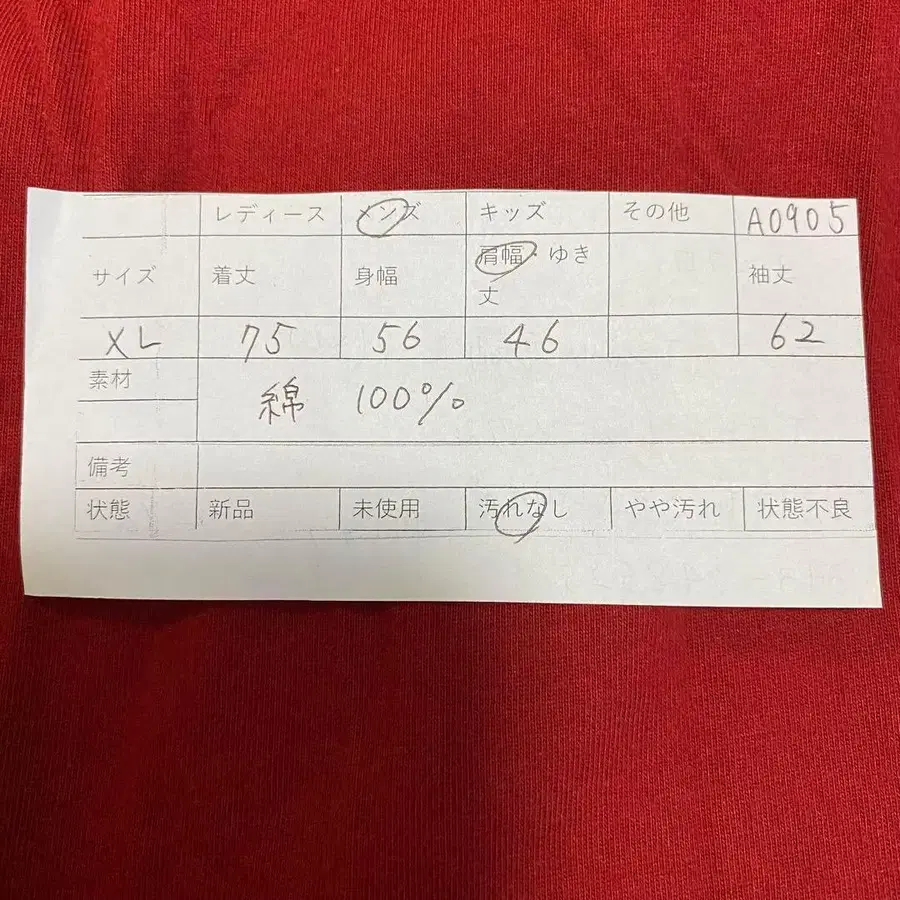 レディース メンズ キッズ その他 A0905
サイズ 着丈 身幅 肩幅・ゆき丈 袖丈
XL 75 56 46 62
素材
綿 100%
備考
状態 新品 未使用 汚れなし やや汚れ 状態不良